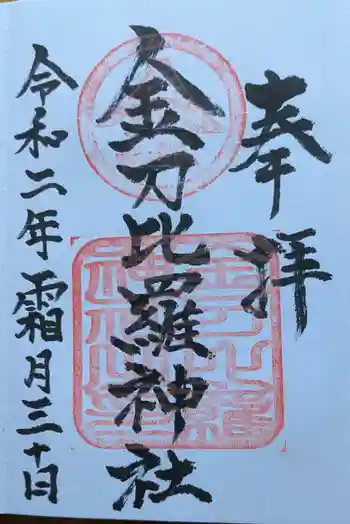 奉拝
金刀比羅神社
令和二年霜月三十日